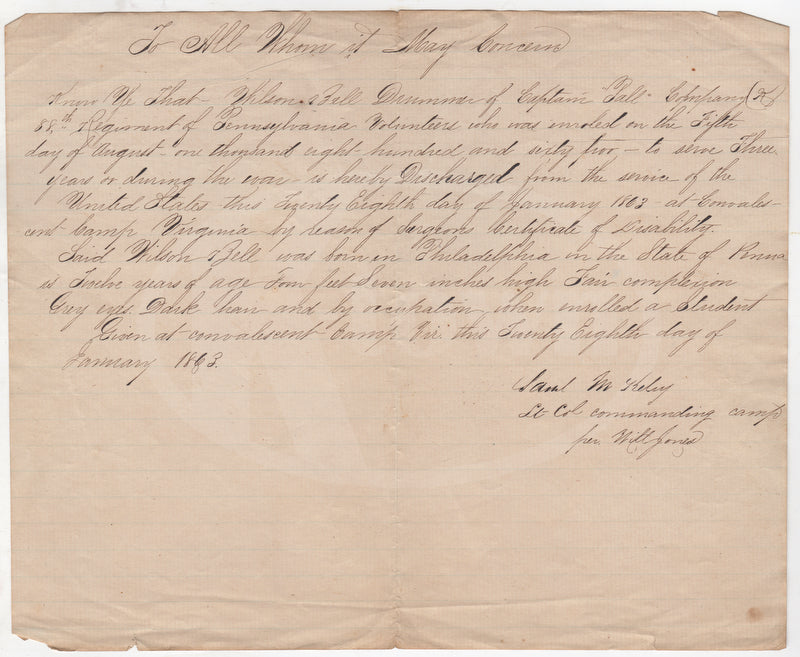 To All Whom it May Concern
Know Ye That - Wilson Bell Drummer of Captain "Pall" Company (K)
88th Regiment of Pennsylvania Volunteers who was enroled on the Fifth
day of August - one thousand eight hundred and sixty two - to serve Three
years or during the war - is hereby Discharged from the service of the
United States this Twenty Eighth day of January 1863 - at Convales-
cent Camp Virginia by reason of Surgeons Certificate of Disability.
Said Wilson Bell was born in Philadelphia in the State of Penna
is Twelve years of age Four feet Seven inches high Fair complexion
Grey eyes. Dark hair and by occupation when enrolled a Student
Given at convalescent Camp Vir. this Twenty Eighth day of
January 1863.
Saml M Kelvy
Lt Col commanding camp
per. Will Jones